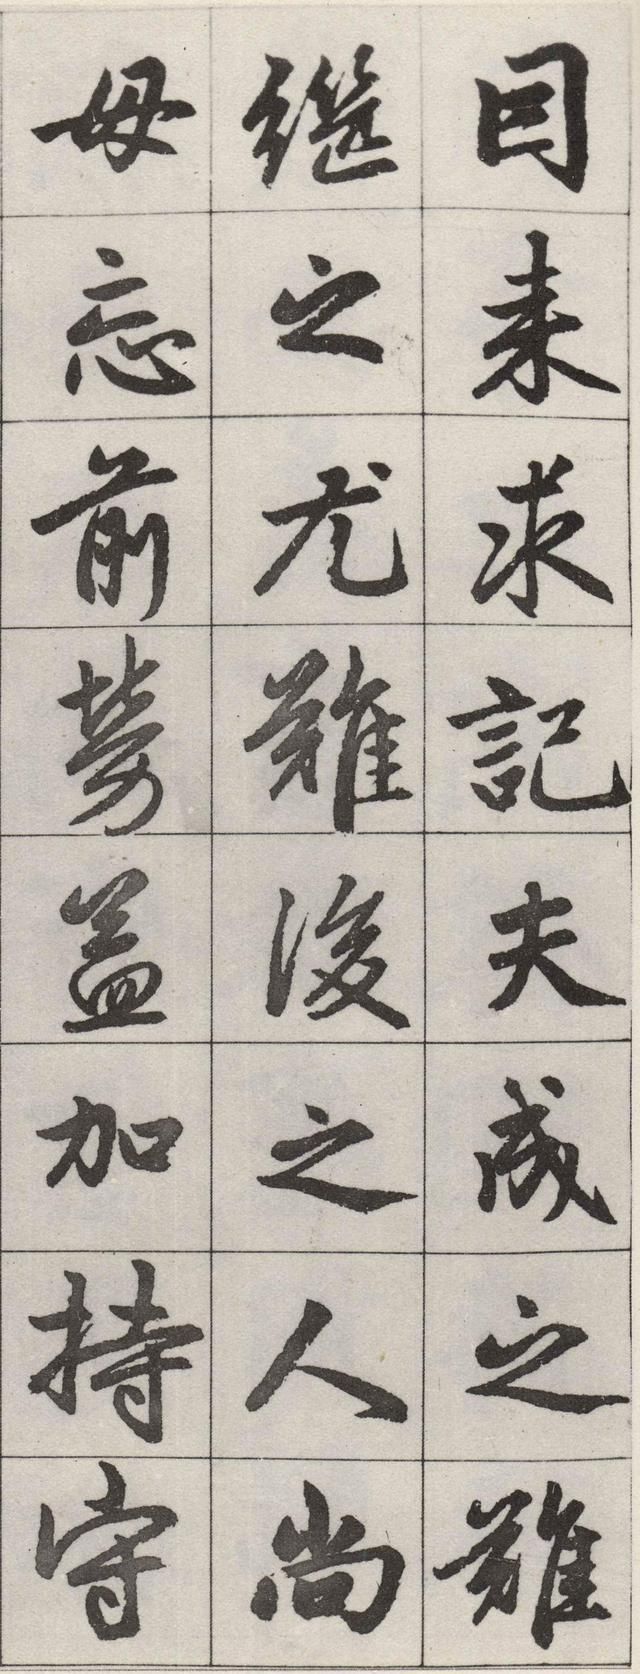 因来求記夫成之難
繼之尤難後之人尚
毋忘前勞益加持守